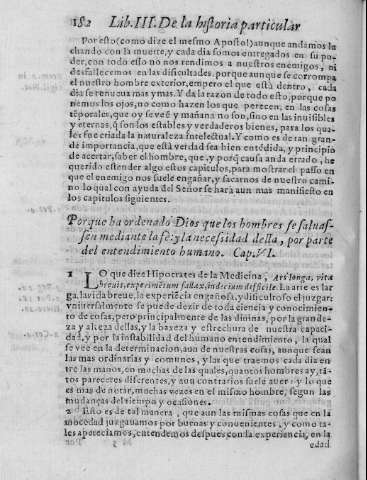 182 Lib. III. De la historia particular
Por esto (como dize el mesmo Apostol) aunque andamos lu
chando con la muerte, y cada dia somos entregados en su po-
der, con todo esso no nos rendimos a nuestros enemigos, ni
desfallecemos en las dificultades. porque aunque se corrompa
el nuestro hombre exterior, empero el que està dentro, cada
dia se renueua mas y mas. Y da la razon de todo esto, porque po
nemos los ojos, no como hazen los que perecen, en las cosas
tẽporales, que oy se vee y mañana no son, sino en las inuisibles
y eternas, q̃ son estables y verdaderos bienes, para los qua-
les fue criada la naturaleza intelectual. Y como es de tan gran-
de importancia, que està verdad sea bien entẽdida, y principio
de acertar, saber el hombre, que, y porq̃ causa anda errado, he
querido estender algo estos capitulos, para mostrar el passo en
que el enemigo nos suele engañar, y sacarnos de nuestro cami-
no lo qual con ayuda del Señor se harà aun mas manifiesto en
los capitulos siguientes.
Porque ha ordenado Dios que los hombres se saluas-
sen mediante la fè: y la necessidad della, por parte
del entendimiento humano. Cap. VI.
1 LO que dize Hipocrates de la Medicina, Ars longa, vita
breuis, experimẽtum fallax, iudicium difficile. La arte es lar
ga, la vida breue, la experiẽcia engañosa, y dificultoso el juzgar:
vniuersalmente se puede dezir de toda ciencia y conocimien-
to de cosas, pero principalmente de las diuinas, por la grande-
za y alteza dellas, y la baxeza y estrechura de nuestra capaci-
dad, y por la instabilidad del humano entendimiento, la qual
se vee en la determinacion, aun de nuestras cosas, aunque sean
las mas ordinarias y comunes, y las que traemos cada dia en
tre las manos, en muchas de las quales, quantos hombres ay, tã-
tos pareceres diferentes, y aun contrarios suele auer: y lo que
es mas de notar, muchas vezes en el mismo hombre, segun las
mudanças del tiempo y ocasiones.
2 Esto es de tal manera, que aun las mismas cosas que en la
mocedad juzgauamos por buenas y conuenientes, y como ta-
les apeteciamos, entendemos despues con la experiencia, en la
edad.